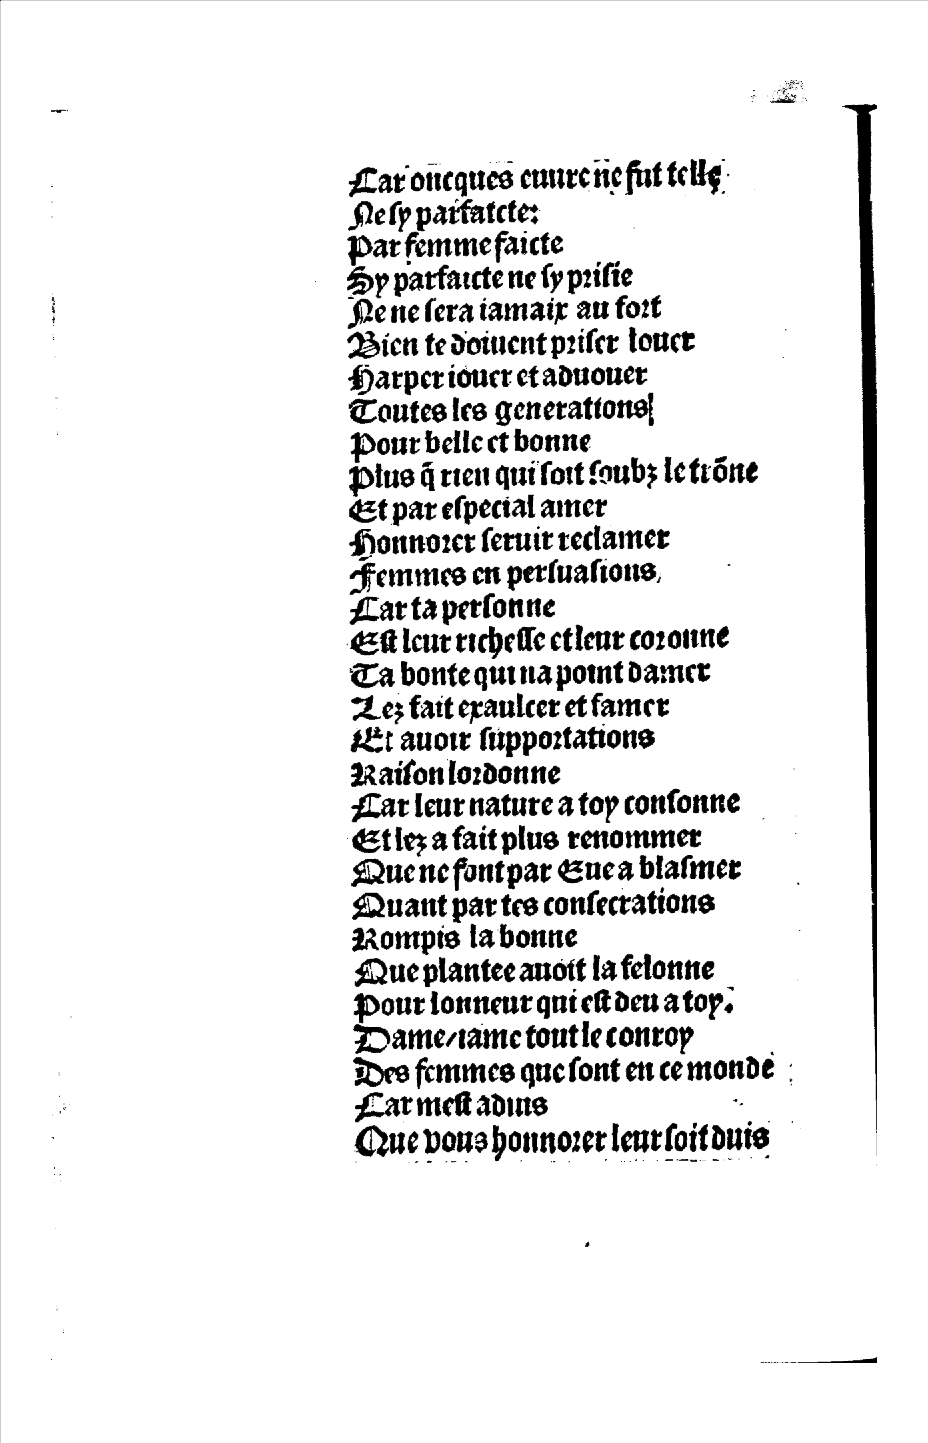 Car oncques euure ne fut telle
Ne sy parfaicte:
Par femme faicte
Sy parfaicte ne sy prisie
Ne ne sera iamaix au fort
Bien te doiuent priser louer
Harper iouer et aduouer
Toutes les generations
Pour belle et bonne
Plus q̄ rien qui soit soubz le trōne
Et par especial amer
Honnorer seruir reclamer
Femmes en persuasions
Car ta personne
Est leur richesse et leur coronne
Ta bonte qui na point damer
Lez fait exaulcer et famer
Et auoir supportations
Raison lordonne
Car leur nature a toy consonne
Et lez a fait plus renommer
Que ne font par Eue a blasmer
Quant par tes consecrations
Rompis la bonne
Que plantee auoit la felonne
Pour lonneur qui est deu a toy.
Dame/iame tout le conroy
Des femmes que sont en ce monde
Car mest aduis
Que vous honnorer leur soit duis